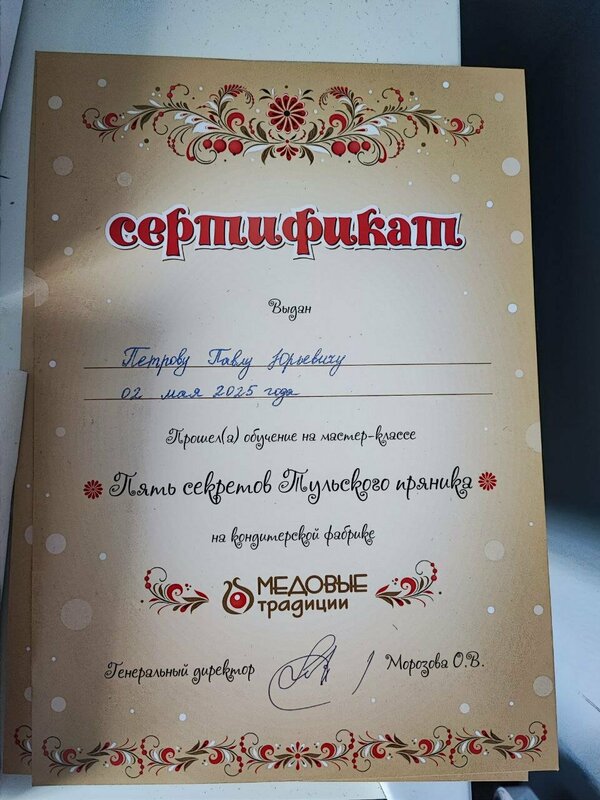 сертификат
Выдан
Петрову Павлу Юрьевичу
02 мая 2025 года
Прошел(а) обучение на мастер-классе
Пять секретов Тульского пряника
на кондитерской фабрике
МЕДОВЫЕ
традиции
Генеральный директор Морозова О.В.